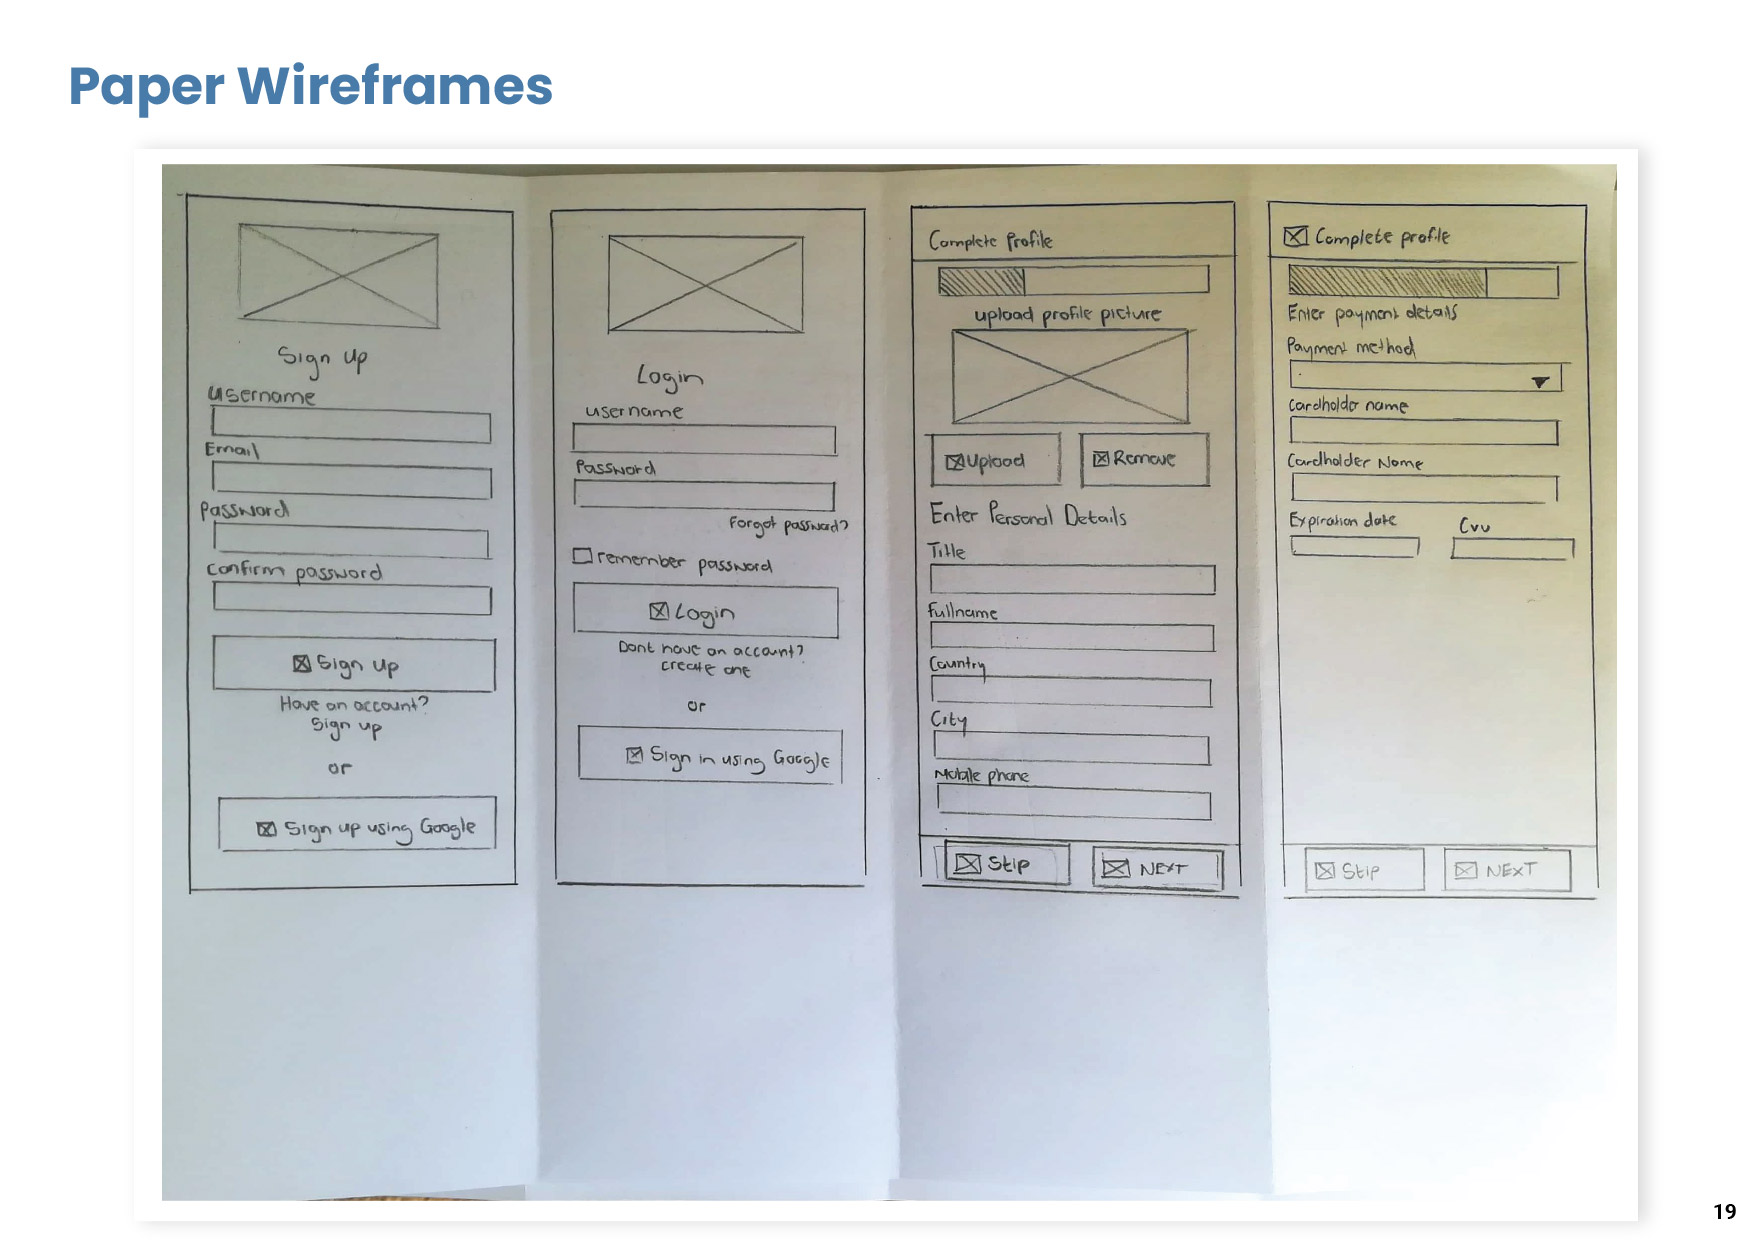 Paper Wireframes
Sign up
username
Email
Password
Confirm password
Sign up
Have an account?
Sign up
or
Sign up using Google
Login
username
Password
Forgot password?
remember password
Login
Dont have an account?
create one
or
Sign in using Google
Complete Profile
upload profile picture
Upload
Remove
Enter Personal Details
Title
Fullname
Country
City
Mobile phone
Skip
NEXT
Complete profile
Enter payment details
Payment method
Cardholder name
Cardholder Name
Expiration date
Cvv
Skip
NEXT
19